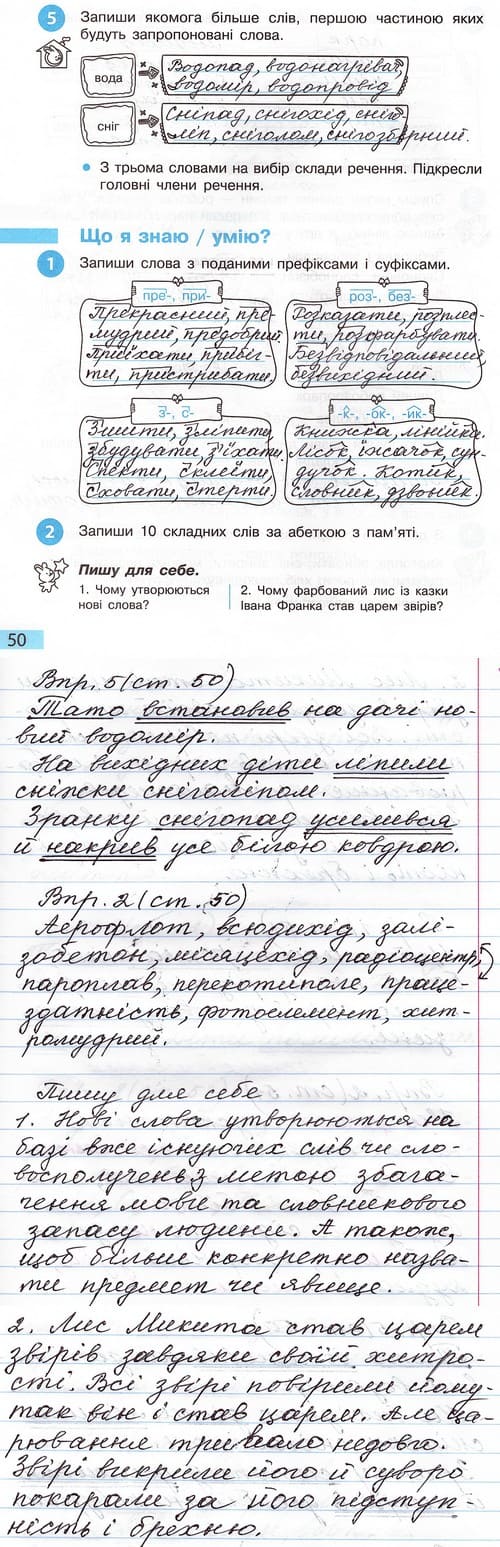 5 Запиши якомога більше слів, першою частиною яких
будуть запропоновані слова.
вода
Водопад, водонагрівач,
водомір, водопровід
сніг
Сніпад, снігохід, сніго-
ліп, сніголом, снігозбірний.
• З трьома словами на вибір склади речення. Підкресли
головні члени речення.
Що я знаю / умію?
1 Запиши слова з поданими префіксами і суфіксами.
пре-, при-
Прекрасний, пре-
мудрий, предобрий.
Приїхати, прибіг-
ти, пристрибати.
роз-, без-
Розказати, розплес-
ти, розфарбувати.
Безвідповідальний,
безвихідний.
з-, с-
Зшити, зліпити,
збудувати, з'їхати.
Спекти, склеїти,
сховати, стерти.
-к-, -ок-, -ик-
Книжка, лінійка.
Лісок, їжачок, сун-
дучок. Котик,
словник, дзвоник.
2 Запиши 10 складних слів за абеткою з пам'яті.
Пишу для себе.
1. Чому утворюються
нові слова?
2. Чому фарбований лис із казки
Івана Франка став царем звірів?
50
Впр. 5 (ст. 50)
Тато встановив на дачі но-
вий водомір.
На вихідних діти ліпили
сніжки сніголіпом.
Зранку снігопад усилився
й накрив усе білою ковдрою.
Впр. 2 (ст. 50)
Аерофлот, всюдихід, залі-
зобетон, місяцехід, радіоцентр,
пароплав, перекотиполе, праце-
здатність, фотоелемент, хит-
ромудрий.
Пишу для себе
1. Нові слова утворюються на
базі вже існуючих слів чи сло-
восполучень з метою збага-
чення мови та словникового
запасу людини. А також,
щоб більш конкретно назва-
ти предмет чи явище.
2. Лис Микита став царем
звірів завдяки своїй хитро-
сті. Всі звірі повірили йому,
так він і став царем. Але ца-
рювання тривало недовго.
Звірі викрили його й суворо
покарали за його підступ-
ність і брехню.